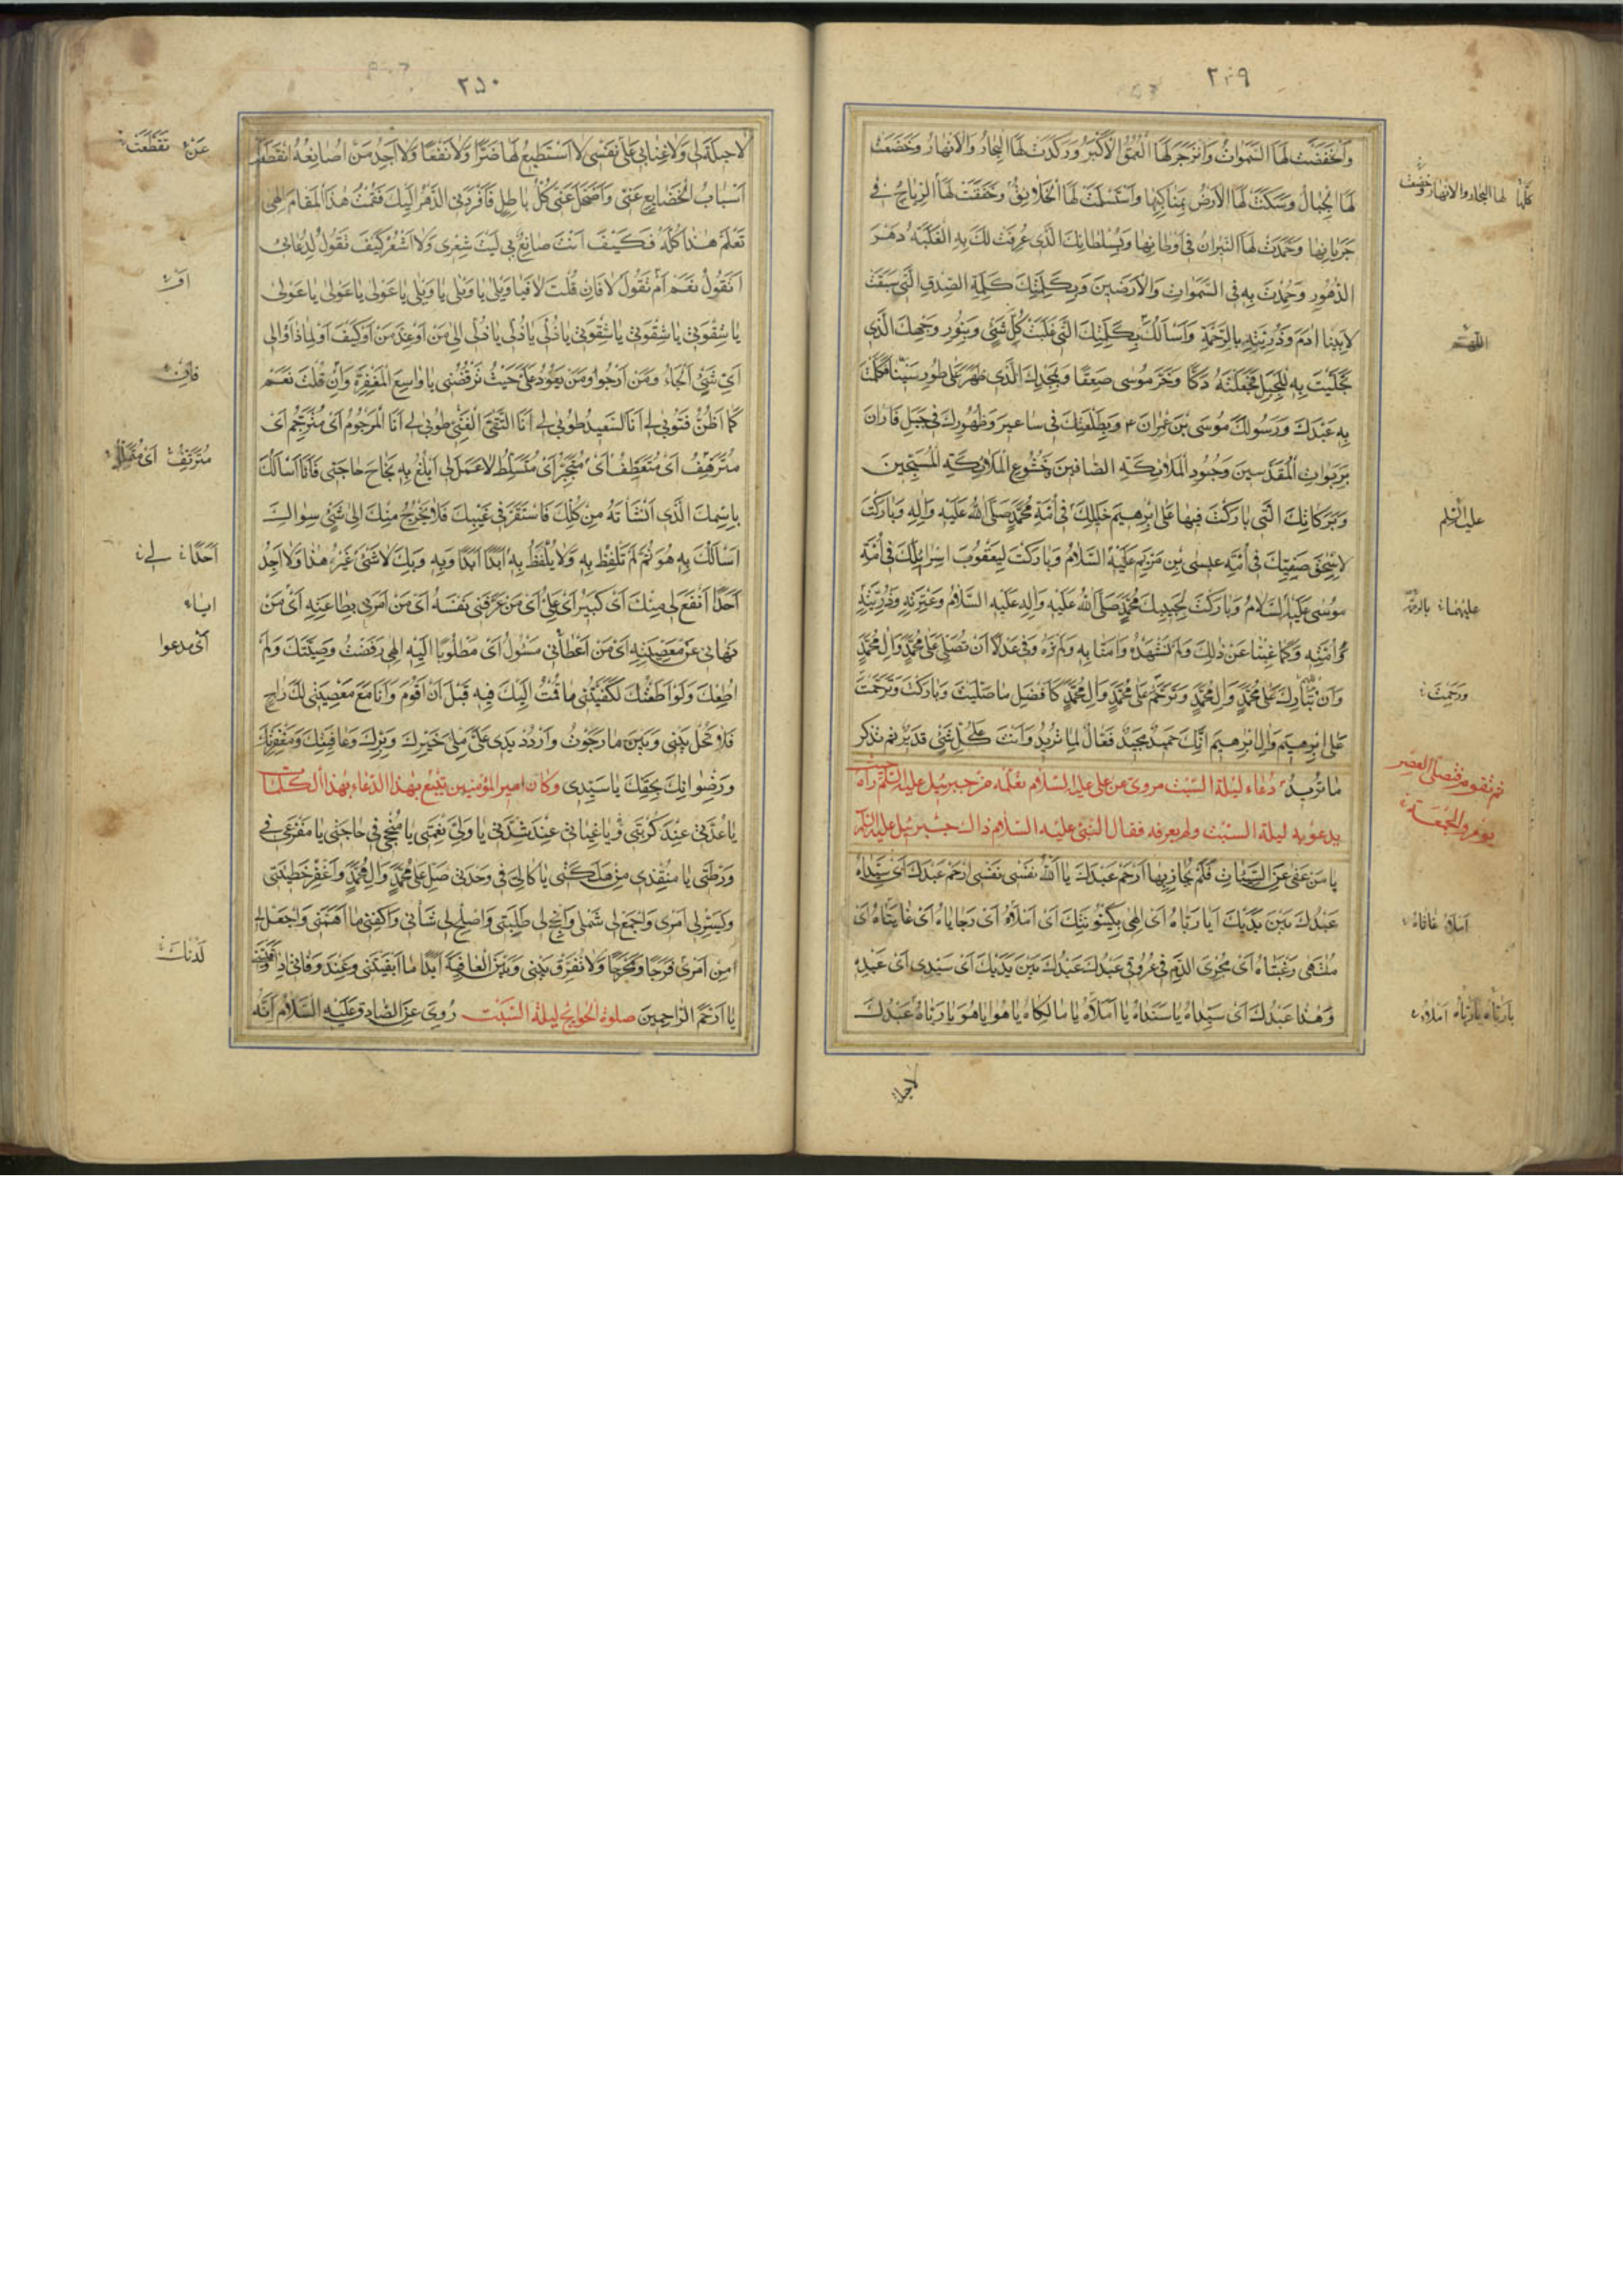 ٢٤٩
وَانْخَفَضَتْ لَهَا السَّمٰوَاتُ وَانْزَجَرَ لَهَا الْعُمْقُ الْاَكْبَرُ وَرَكَدَتْ لَهَا الْبِحَارُ وَالْاَنْهَارُ وَخَضَعَتْ
لَهَا الْجِبَالُ وَسَكَنَتْ لَهَا الْاَرْضُ بِمَنَاكِبِهَا وَاسْتَسْلَمَتْ لَهَا الْخَلَائِقُ وَخَفَقَتْ لَهَا الرِّيَاحُ فِي
جَرَيَانِهَا وَخَمَدَتْ لَهَا النِّيرَانُ فِي اَوْطَانِهَا وَبِسُلْطَانِكَ الَّذِي عُرِفَتْ لَكَ بِهِ الْغَلَبَةُ دَهْرَ
الدُّهُورِ وَحُمِدْتَ بِهِ فِي السَّمٰوَاتِ وَالْاَرَضِينَ وَبِكَلِمَتِكَ كَلِمَةِ الصِّدْقِ الَّتِي سَبَقَتْ
لِاَبِينَا اٰدَمَ وَذُرِّيَّتِهِ بِالرَّحْمَةِ وَاَسْاَلُكَ بِكَلِمَتِكَ الَّتِي غَلَبَتْ كُلَّ شَيْءٍ وَبِنُورِ وَجْهِكَ الَّذِي
تَجَلَّيْتَ بِهِ لِلْجَبَلِ فَجَعَلْتَهُ دَكًّا وَخَرَّ مُوسٰى صَعِقًا وَبِمَجْدِكَ الَّذِي ظَهَرَ عَلٰى طُورِ سَيْنَاءَ فَكَلَّمْتَ
بِهِ عَبْدَكَ وَرَسُولَكَ مُوسَى بْنَ عِمْرَانَ ع وَبِطَلْعَتِكَ فِي سَاعِيرَ وَظُهُورِكَ فِي جَبَلِ فَارَانَ
بِرَبَوَاتِ الْمُقَدَّسِينَ وَجُنُودِ الْمَلَائِكَةِ الصَّافِّينَ وَخُشُوعِ الْمَلَائِكَةِ الْمُسَبِّحِينَ
وَبِبَرَكَاتِكَ الَّتِي بَارَكْتَ فِيهَا عَلٰى اِبْرٰهِيمَ خَلِيلِكَ فِي اُمَّةِ مُحَمَّدٍ صَلَّى اللّٰهُ عَلَيْهِ وَاٰلِهِ وَبَارَكْتَ
لِاِسْحٰقَ صَفِيِّكَ فِي اُمَّةِ عِيسَى بْنِ مَرْيَمَ عَلَيْهِ السَّلَامُ وَبَارَكْتَ لِيَعْقُوبَ اِسْرَائِيلِكَ فِي اُمَّةِ
مُوسٰى عَلَيْهِ السَّلَامُ وَبَارَكْتَ لِحَبِيبِكَ مُحَمَّدٍ صَلَّى اللّٰهُ عَلَيْهِ وَاٰلِهِ عَلَيْهِ السَّلَامُ وَعِتْرَتِهِ وَذُرِّيَّتِهِ
وَاُمَّتِهِ وَكَمَا غِبْنَا عَنْ ذٰلِكَ وَلَمْ نَشْهَدْهُ وَاٰمَنَّا بِهِ وَلَمْ نَرَهُ صِدْقًا وَعَدْلًا اَنْ تُصَلِّيَ عَلٰى مُحَمَّدٍ وَاٰلِ مُحَمَّدٍ
وَاَنْ تُبَارِكَ عَلٰى مُحَمَّدٍ وَاٰلِ مُحَمَّدٍ وَتَرَحَّمَ عَلٰى مُحَمَّدٍ وَاٰلِ مُحَمَّدٍ كَاَفْضَلِ مَا صَلَّيْتَ وَبَارَكْتَ وَتَرَحَّمْتَ
عَلٰى اِبْرٰهِيمَ وَاٰلِ اِبْرٰهِيمَ اِنَّكَ حَمِيدٌ مَجِيدٌ فَعَّالٌ لِمَا تُرِيدُ وَاَنْتَ عَلٰى كُلِّ شَيْءٍ قَدِيرٌ ثم تذكر
ما تريد دعاء ليلة السبت مروى عن على عليه السلام تعلمه من جبرئيل عليه السلام حيث رآه
يدعو به ليلة السبت ولم يعرفه فقال النبى عليه السلام ذاك جبرئيل عليه السلام
يَا مَنْ عَفٰى عَنِ السَّيِّئَاتِ فَلَمْ يُجَازِ بِهَا اِرْحَمْ عَبْدَكَ يَا اَللّٰهُ نَفْسِي نَفْسِي اِرْحَمْ عَبْدَكَ اَيْ سَيِّدَاهُ
عَبْدُكَ بَيْنَ يَدَيْكَ اَيَا رَبَّاهُ اَيْ اِلٰهِي بِكَيْنُونَتِكَ اَيْ اَمَلَاهُ اَيْ رَجَايَاهُ اَيْ غَايَتَاهُ اَيْ
مُنْتَهٰى رَغْبَتَاهُ اَيْ مُجْرِيَ الدَّمِ فِي عُرُوقِي عَبْدُكَ عَبْدُكَ بَيْنَ يَدَيْكَ اَيْ سَيِّدِي اَيْ عَبْدِهِ
وَهٰذَا عَبْدُكَ اَيْ سَيِّدَاهُ يَا سَنَدَاهُ يَا اَمَلَاهُ يَا مَالِكَاهُ يَا هُوَ اَيَا هُوَ يَا رَبَّاهُ عَبْدُكَ
لاحيلة
كلها لها البحار والانهار وخضعت
اللهم
عليه السلم
عليهما
ورحمت
ثم تقوم فتصلى العصر
يوم الجمعة
املاه غاتاه
يا رباه يا رباه املاه
٢٥٠
لَا حِيلَةَ لِي وَلَا غِنٰى بِي عَلٰى نَفْسِي لَا اَسْتَطِيعُ لَهَا ضَرًّا وَلَا نَفْعًا وَلَا اَجِدُ مَنْ اُصَانِعُهُ اِنْقَطَعَتْ
اَسْبَابُ الْخَدَائِعِ عَنِّي وَاضْمَحَلَّ عَنِّي كُلُّ بَاطِلٍ فَاَفْرَدَنِي الدَّهْرُ اِلَيْكَ فَقُمْتُ هٰذَا الْمَقَامَ اِلٰهِي
تَعْلَمُ هٰذَا كُلَّهُ فَكَيْفَ اَنْتَ صَانِعٌ بِي لَيْتَ شِعْرِي وَلَا اَشْعُرُ كَيْفَ تَقُولُ لِدُعَائِي
اَتَقُولُ نَعَمْ اَمْ تَقُولُ لَا فَاِنْ قُلْتَ لَا فَيَا وَيْلِي يَا وَيْلِي يَا وَيْلِي يَا عَوْلِي يَا عَوْلِي يَا عَوْلِي
يَا شِقْوَتِي يَا شِقْوَتِي يَا شِقْوَتِي يَا ذُلِّي يَا ذُلِّي يَا ذُلِّي اِلٰى مَنْ اَوْ عِنْدَ مَنْ اَوْ كَيْفَ اَوْ لِمَاذَا اَوْ اِلٰى
اَيِّ شَيْءٍ اَلْجَاُ وَمَنْ اَرْجُو اَوْ مَنْ يَعُودُ عَلَيَّ حَيْثُ تَرْفُضُنِي يَا وَاسِعَ الْمَغْفِرَةِ وَاِنْ قُلْتَ نَعَمْ
كَمَا اَظُنُّ فَطُوبٰى لِي اَنَا السَّعِيدُ طُوبٰى لِي اَنَا التَّقِيُّ الْغَنِيُّ طُوبٰى لِي اَنَا الْمَرْحُومُ اَيْ مُتَرَحِّمُ اَيْ
مُتَرَئِّفُ اَيْ مُتَعَطِّفُ اَيْ مُتَجَبِّرُ اَيْ مُتَسَلِّطُ لَا عَمَلَ لِي اَبْلُغُ بِهِ نَجَاحَ حَاجَتِي فَاَنَا اَسْاَلُكَ
بِاسْمِكَ الَّذِي اَنْشَاْتَهُ مِنْ كُلِّكَ فَاسْتَقَرَّ فِي غَيْبِكَ فَلَا يَخْرُجُ مِنْكَ اِلٰى شَيْءٍ سِوَاكَ
اَسْاَلُكَ بِهِ هُوَ ثُمَّ لَمْ تَلْفِظْ بِهِ وَلَا يُلْفَظُ بِهِ اَبَدًا اَبَدًا وَبِهِ وَبِكَ لَا شَيْءَ غَيْرُ هٰذَا وَلَا اَجِدُ
اَحَدًا اَنْفَعَ لِي مِنْكَ اَيْ كَبِيرُ اَيْ عَلِيُّ اَيْ مَنْ عَرَّفَنِي نَفْسَهُ اَيْ مَنْ اَمَرَنِي بِطَاعَتِهِ اَيْ مَنْ
نَهَانِي عَنْ مَعْصِيَتِهِ اَيْ مَنْ اَعْطَانِي مَسْئُولُ اَيْ مَطْلُوبًا اِلَيْهِ اِلٰهِي رَفَضْتُ وَصِيَّتَكَ وَلَمْ
اُطِعْكَ وَلَوْ اَطَعْتُكَ لَكَفَيْتَنِي مَا قُمْتُ اِلَيْكَ فِيهِ قَبْلَ اَنْ اَقُومَ وَاَنَا مَعَ مَعْصِيَتِي لَكَ رَاجٍ
فَلَا تَحُلْ بَيْنِي وَبَيْنَ مَا رَجَوْتُ وَارْدُدْ يَدِي عَلَيَّ مَلْئٰى خَيْرِكَ وَبِرِّكَ وَعَافِيَتِكَ وَمَغْفِرَتِكَ
وَرِضْوَانِكَ بِحَقِّكَ يَا سَيِّدِي وكان امير المؤمنين يتبع بهذا الدعاء بهذا الكلمات
يَا عُدَّتِي عِنْدَ كُرْبَتِي وَيَا غِيَاثِي عِنْدَ شِدَّتِي يَا وَلِيَّ نِعْمَتِي يَا مُنْجِحِي فِي حَاجَتِي يَا مَفْزَعِي فِي
وَرْطَتِي يَا مُنْقِذِي مِنْ هَلَكَتِي يَا كَالِئِي فِي وَحْدَتِي صَلِّ عَلٰى مُحَمَّدٍ وَاٰلِ مُحَمَّدٍ وَاغْفِرْ خَطِيئَتِي
وَيَسِّرْ لِي اَمْرِي وَاجْمَعْ لِي شَمْلِي وَاَنْجِحْ لِي طَلِبَتِي وَاَصْلِحْ لِي شَاْنِي وَاكْفِنِي مَا اَهَمَّنِي وَاجْعَلْ لِي
مِنْ اَمْرِي فَرَجًا وَمَخْرَجًا وَلَا تُفَرِّقْ بَيْنِي وَبَيْنَ الْعَافِيَةِ اَبَدًا مَا اَبْقَيْتَنِي وَعِنْدَ وَفَاتِي اِذَا تَوَفَّيْتَنِي
يَا اَرْحَمَ الرَّاحِمِينَ صلوة الحوائج ليلة السبت رُوِيَ عَنِ الصَّادِقِ عَلَيْهِ السَّلَامُ اَنَّهُ
عَنِّي تَقَطَّعَتْ
فان
مترئف
احدا لى
اى مدعوا
لدنك